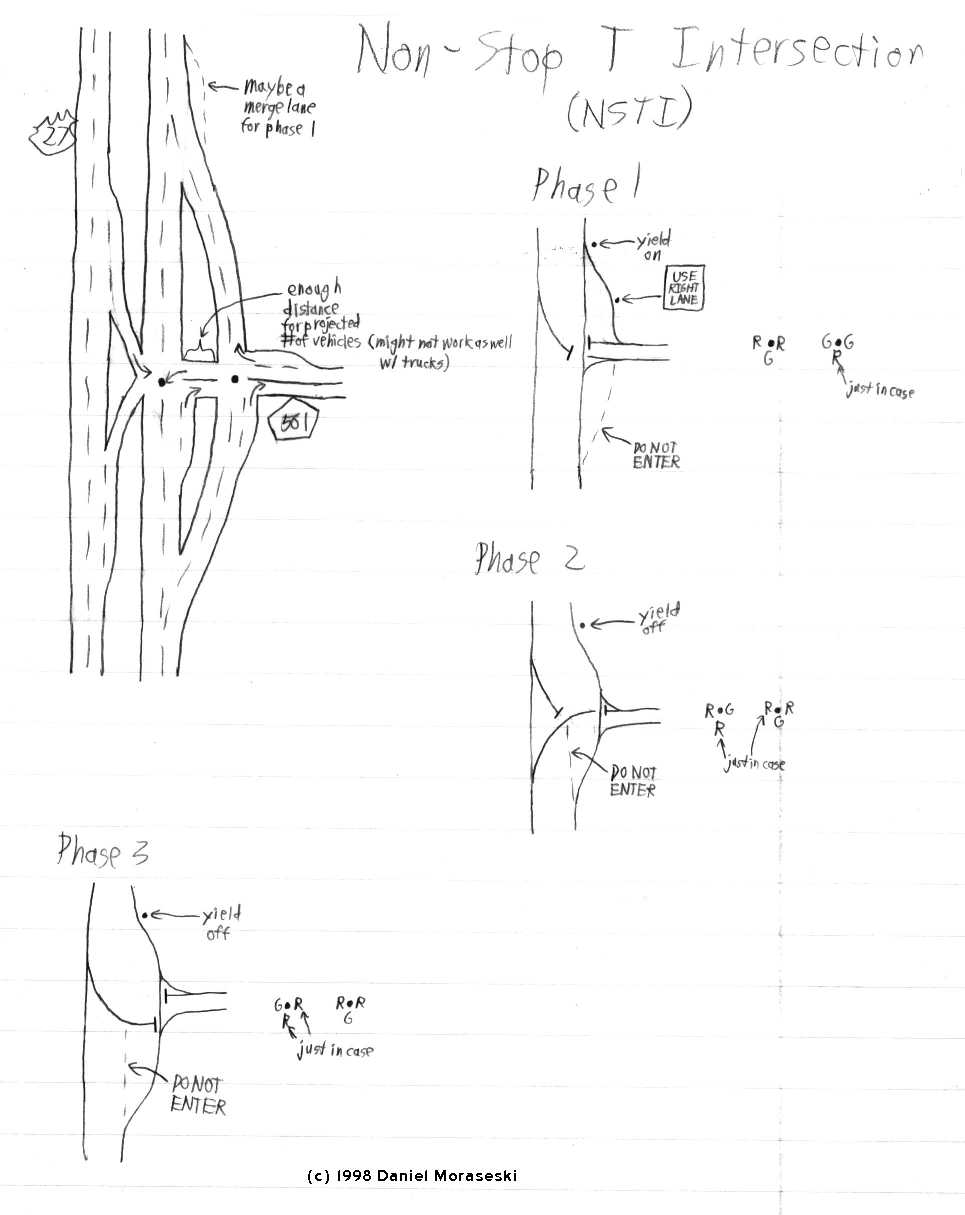 Non-Stop T Intersection
(NSTI)
maybe a
merge lane
for phase 1
27
enough
distance
for projected
# of vehicles (might not work as well
w/ trucks)
Phase 1
yield
on
USE
RIGHT
LANE
R R
G
G G
R
just in case
DO NOT
ENTER
Phase 2
yield
off
R G
R
R R
G
just in case
DO NOT
ENTER
Phase 3
yield
off
G R
R
R R
G
just in case
DO NOT
ENTER
(c) 1998 Daniel Moraseski